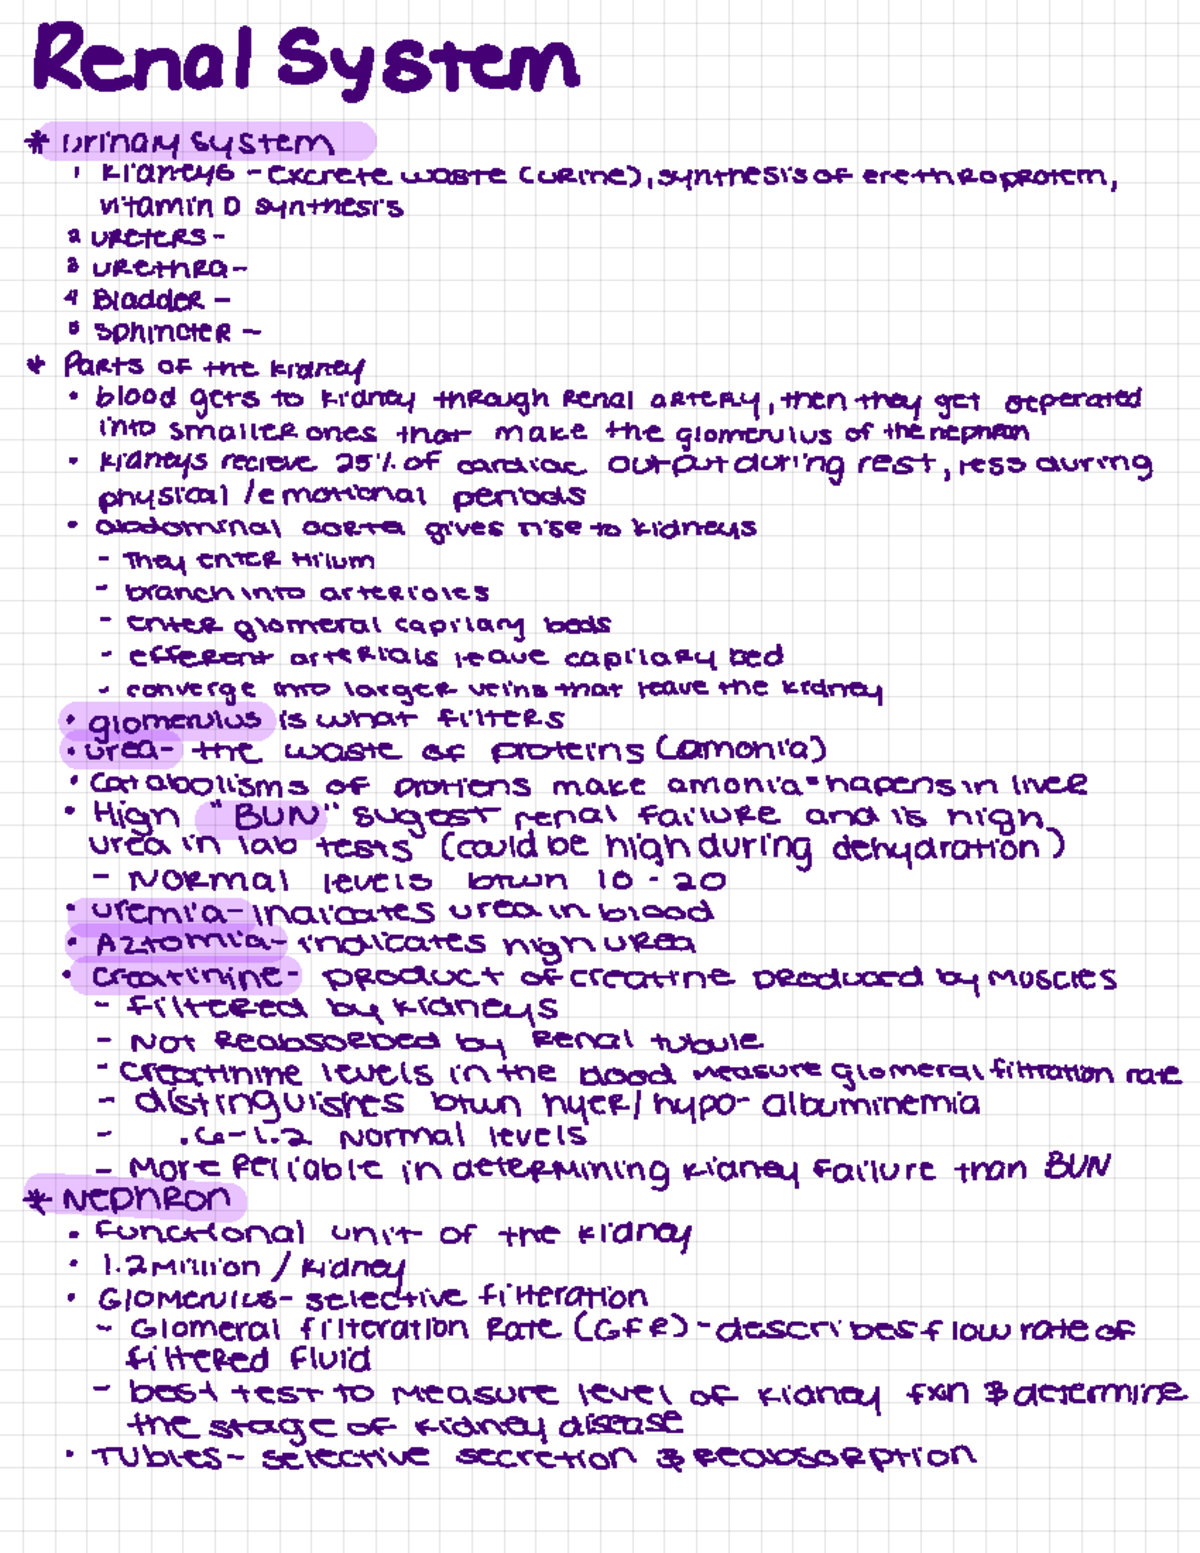 Renal System
* Urinary System
1 Kidneys - Excrete waste (urine), synthesis of erethroprotem,
vitamin D synthesis
2 Ureters -
3 Urethra -
4 Bladder -
5 Sphincter -
* Parts of the kidney
• blood gets to kidney through renal artery, then they get seperated
into smaller ones that make the glomerulus of the nephron
• kidneys recieve 25% of cardiac output during rest, less during
physical / emotional periods
• abdominal aorta gives rise to kidneys
- They enter Hilum
- branch into arterioles
- enter glomeral capilary beds
- efferent arterials leave capilary bed
- converge into larger veins that leave the kidney
• glomerulus is what filters
• urea- the waste of proteins (amonia)
• Catabolisms of protiens make amonia • hapens in liver
• High "BUN" sugest renal failure and is high
urea in lab tests (could be high during dehydration)
- Normal levels btwn 10 - 20
• uremia- indicates urea in blood
• Aztomia- indicates high urea
• Creatinine- product of creatine produced by muscles
- filtered by kidneys
- Not Reabsorbed by Renal tubule
- Creatinine levels in the blood measure glomeral filtration rate
- distinguishes btwn hyer/hypo- albuminemia
- .6-1.2 Normal levels
- More reliable in determining kidney failure than BUN
* Nephron
• functional unit of the kidney
• 1.2 Million / kidney
• Glomerulus- selective filteration
- Glomeral filteration Rate (GFR) - describes flow rate of
filtered fluid
- best test to measure level of kidney fxn & determine
the stage of kidney disease
• Tubles- selective secretion & reabsorption